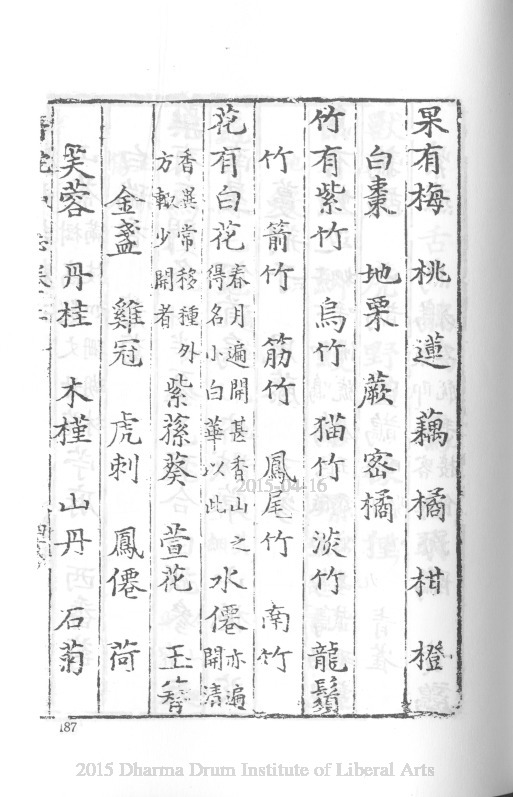 果有梅 桃 蓮 藕 橘 柑 橙
白棗 地栗 蕨 密橘
竹有紫竹 烏竹 猫竹 淡竹 龍鬚
竹 箭竹 筋竹 鳳尾竹 南竹
花有白花春月遍開甚香山之得名小白華以此 水僊亦遍開清
香異常移種外方輙少開者 紫蓀葵 萱花 玉簪
金盞 雞冠 虎刺 鳳僊 荷
芙蓉 丹桂 木槿 山丹 石菊
187
2015-04-16
2015 Dharma Drum Institute of Liberal Arts